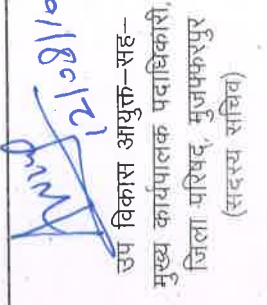 12/08/10
उप विकास आयुक्त–सह–
मुख्य कार्यपालक पदाधिकारी,
जिला परिषद्, मुजफ्फरपुर
(सदस्य सचिव)